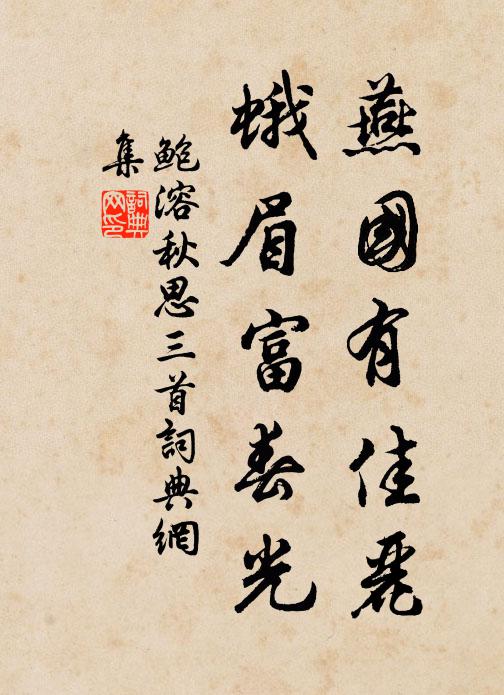 燕國有佳麗
蛾眉富春光
鲍溶秋思三首詞典網
集
詞典網印